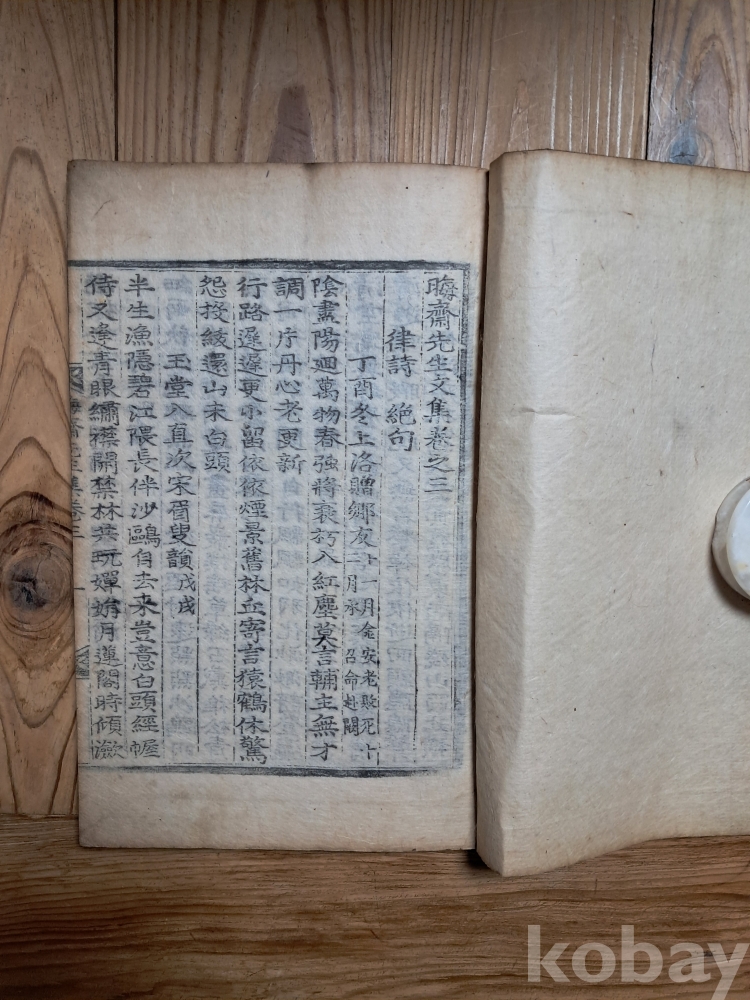 晦齋先生文集卷之三
律詩 絶句
丁酉冬上洛贈鄉友 十一月金安老敗死十二月承 召命赴闕
陰盡陽廻萬物春強將衰朽入紅塵莫言輔主無才
調一片丹心老更新
行路遲遲更小留依依煙景舊林丘寄言猿鶴休驚
怨投綬還山未白頭
玉堂入直次宋眉叟韻 戊戌
半生漁隱碧江隈長伴沙鷗自去来豈意白頭經幄
侍又逢青眼繡襟開禁林共玩嬋娟月蓮閣時傾瀲
晦齋先生集卷三
一
kobay